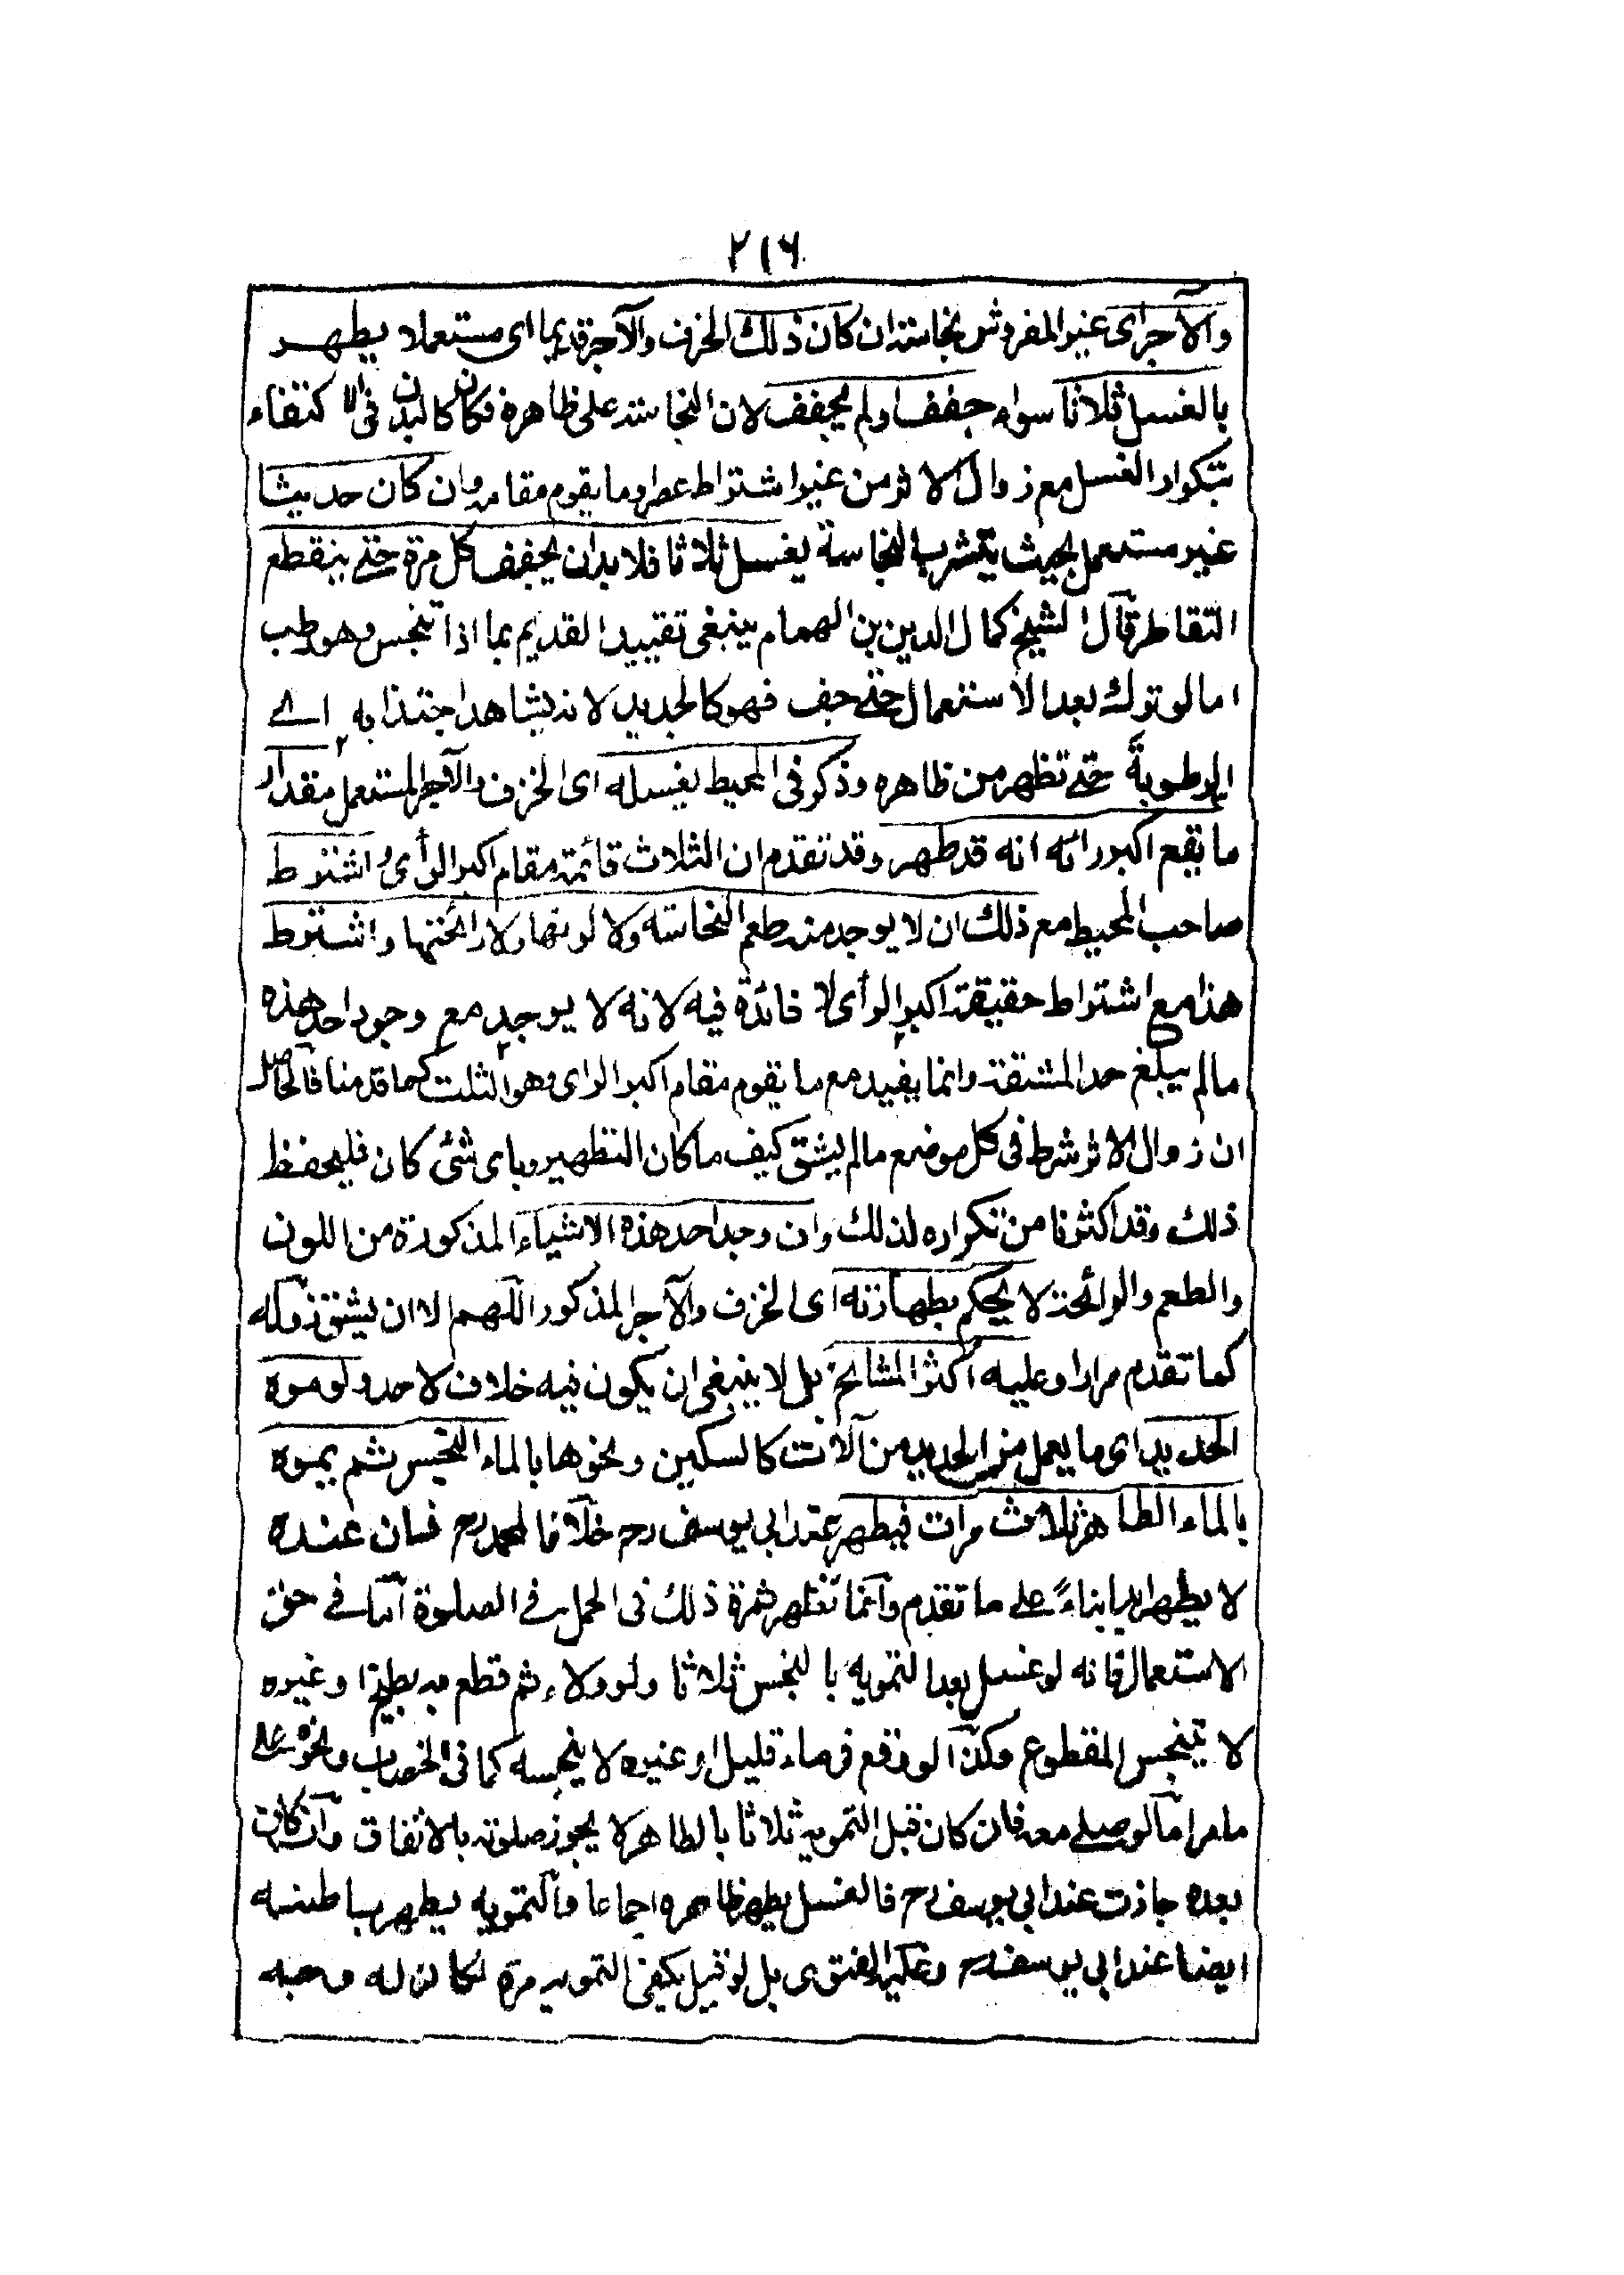 ٢١٦
والآجر اى غير المفروش بنجاسة ان كان ذلك الخزف والآجر قديما اى مستعملا يطهر
بالغسل ثلاثا سواء جفف او لم يجفف لان النجاسة على ظاهره فكان كالبدن فى الاكتفاء
بتكرار الغسل مع زوال الاثر من غير اشتراط عصر وما يقوم مقامه وان كان حديثا
غير مستعمل بحيث يتشرب النجاسة يغسل ثلاثا فلا بد ان يجفف كل مرة حتى ينقطع
التقاطر قال الشيخ كمال الدين بن الهمام ينبغى تقييد القديم بما اذا تنجس وهو رطب
اما لو ترك بعد الاستعمال حتى جف فهو كالجديد لانه يشاهد اجتذابه اى
الرطوبة حتى تظهر من ظاهره وذكر فى المحيط يغسله اى الخزف والآجر المستعمل مقدار
ما يقع اكبر رائه انه قد طهر وقد تقدم ان الثلاث قائمة مقام اكبر الرأى واشترط
صاحب المحيط مع ذلك ان لا يوجد منه طعم النجاسة ولا لونها ولا رائحتها واشترط
هذا مع اشتراط حقيقة اكبر الرأى لا فائدة فيه لانه لا يوجد مع وجود احد هذه
مالم يبلغ حد المشقة وانما يفيد مع ما يقوم مقام اكبر الراى وهو الثلث كما قدمنا فالحاصل
ان زوال الاثر شرط فى كل موضع مالم يشق كيف ما كان التطهير وباى شئ كان فليحفظ
ذلك وقد اكثرنا من تكراره لذلك وان وجد احد هذه الاشياء المذكورة من اللون
والطعم والرائحة لا يحكم بطهارته اى الخزف والآجر المذكور اللهم الا ان يشق زواله
كما تقدم مرارا وعليه اكثر المشائخ بل لا ينبغى ان يكون فيه خلاف لاحد ولو موه
الحديد اى ما يعمل من الحديد من آلات كالسكين ونحوها بالماء النجس ثم يموه
بالماء الطاهر ثلاث مرات فيطهر عند ابى يوسف رح خلافا لمحمد رح فان عنده
لا يطهر ابدا بناءً على ما تقدم وانما تظهر ثمرة ذلك فى الحمل فى الصلوة اما فى حق
الاستعمال فانه لو غسل بعد التمويه بالنجس ثلاثا ولو ولاء ثم قطع به بطيخا او غيره
لا يتنجس المقطوع وكذا لو وقع فى ماء قليل او غيره لا ينجسه كما فى الخضاب ونحوه على
ما مر اما لو صلى معه فان كان قبل التمويه ثلاثا بالطاهر لا يجوز صلوته بالاتفاق وان كان
بعده جازت عند ابى يوسف رح فالغسل يطهر ظاهره اجماعا والتمويه يطهر باطنه
ايضا عند ابى يوسف رح وعليه الفتوى بل لو قيل يكفى التمويه مرة لكان له وجه